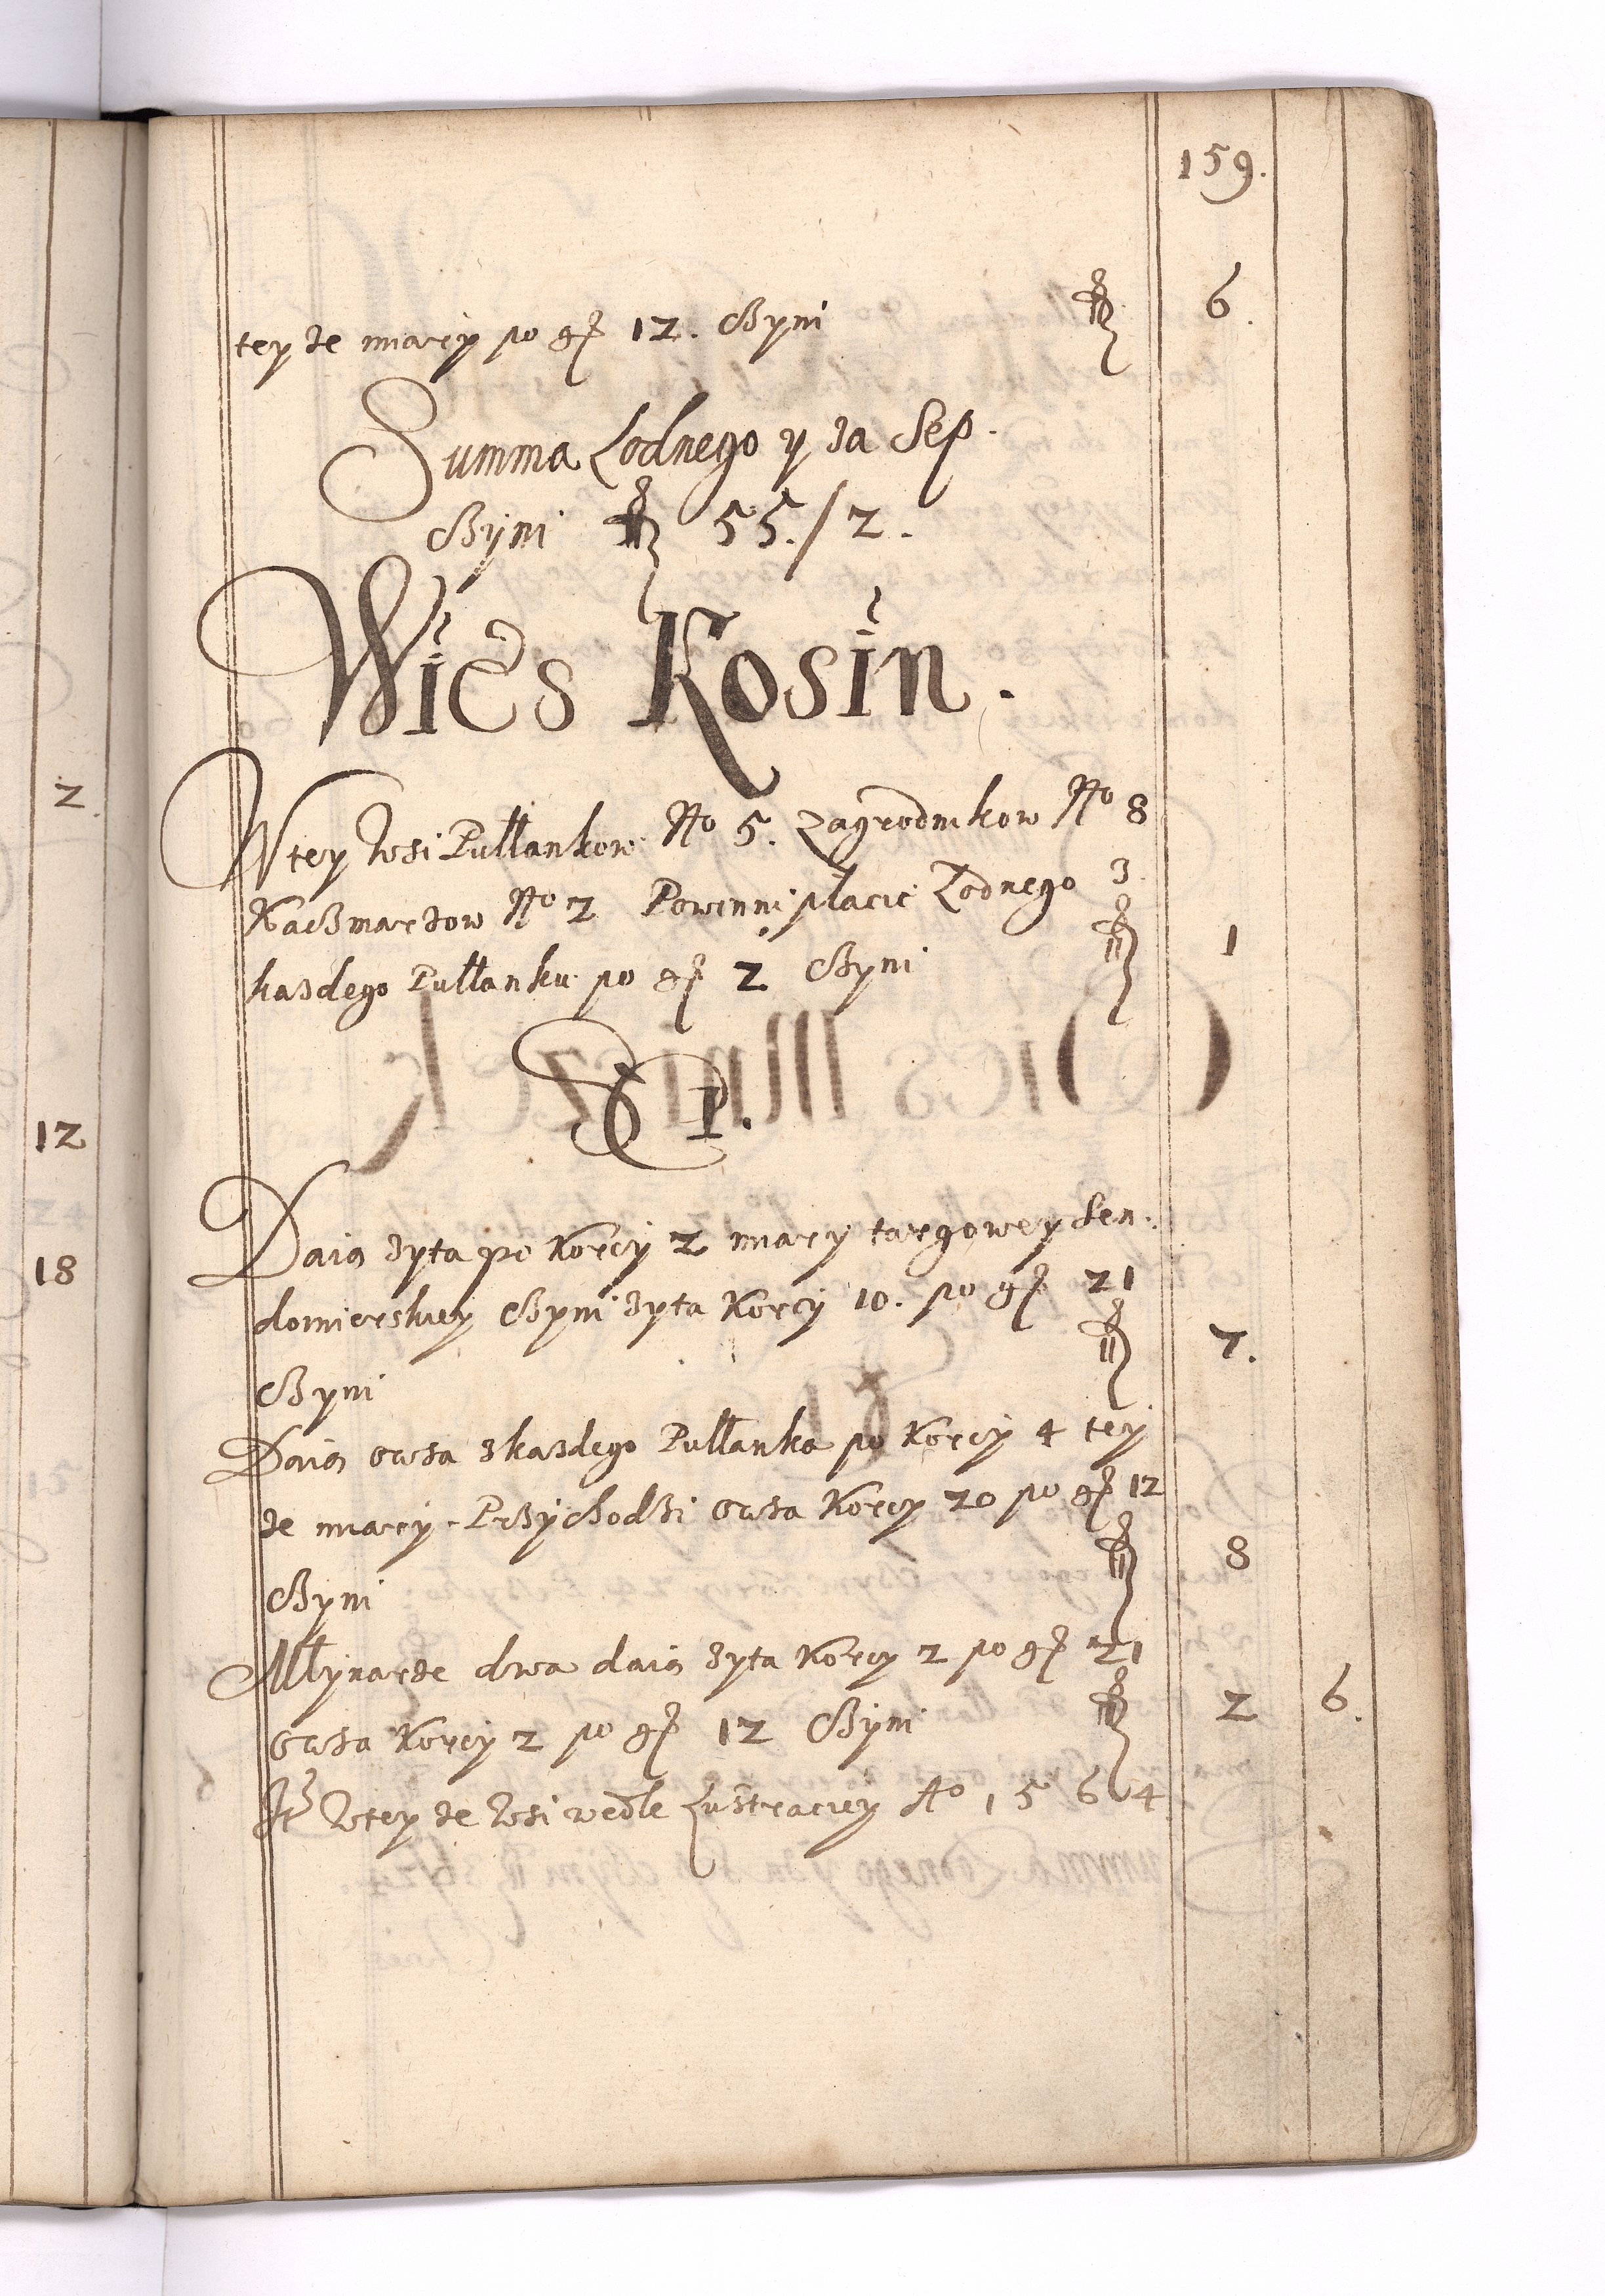 159.
teyze miary po gr 12. Czyni fl 6.
Summa Czodnego y za Sep.
Czyni fl 55./2.
Wies Kosin.
W tey wsi Pułłankow No 5. Zagrodnikow No 8
Kaczmarzow No 2 Powinni płacic Czodnego z
kazdego Pułłanku po gr 2 Czyni fl 1
Sep.
Daią zyta po Korcy 2 miary targowey Sen:
domierskiey Czyni zyta Korcy 10. po gr 21
Czyni fl 7.
Daią owsa z kazdego Pułłanka po Korcy 4 tey
ze miary. Przychodzi owsa Korcy 20 po gr 12
Czyni fl 8
Młynarze dwa daią zyta Korcy 2 po gr 21
owsa Korcy 2 po gr 12 Czyni fl 2 6.
It. w teyze wsi wedle Lustraciey Ao 1564
2
12
18